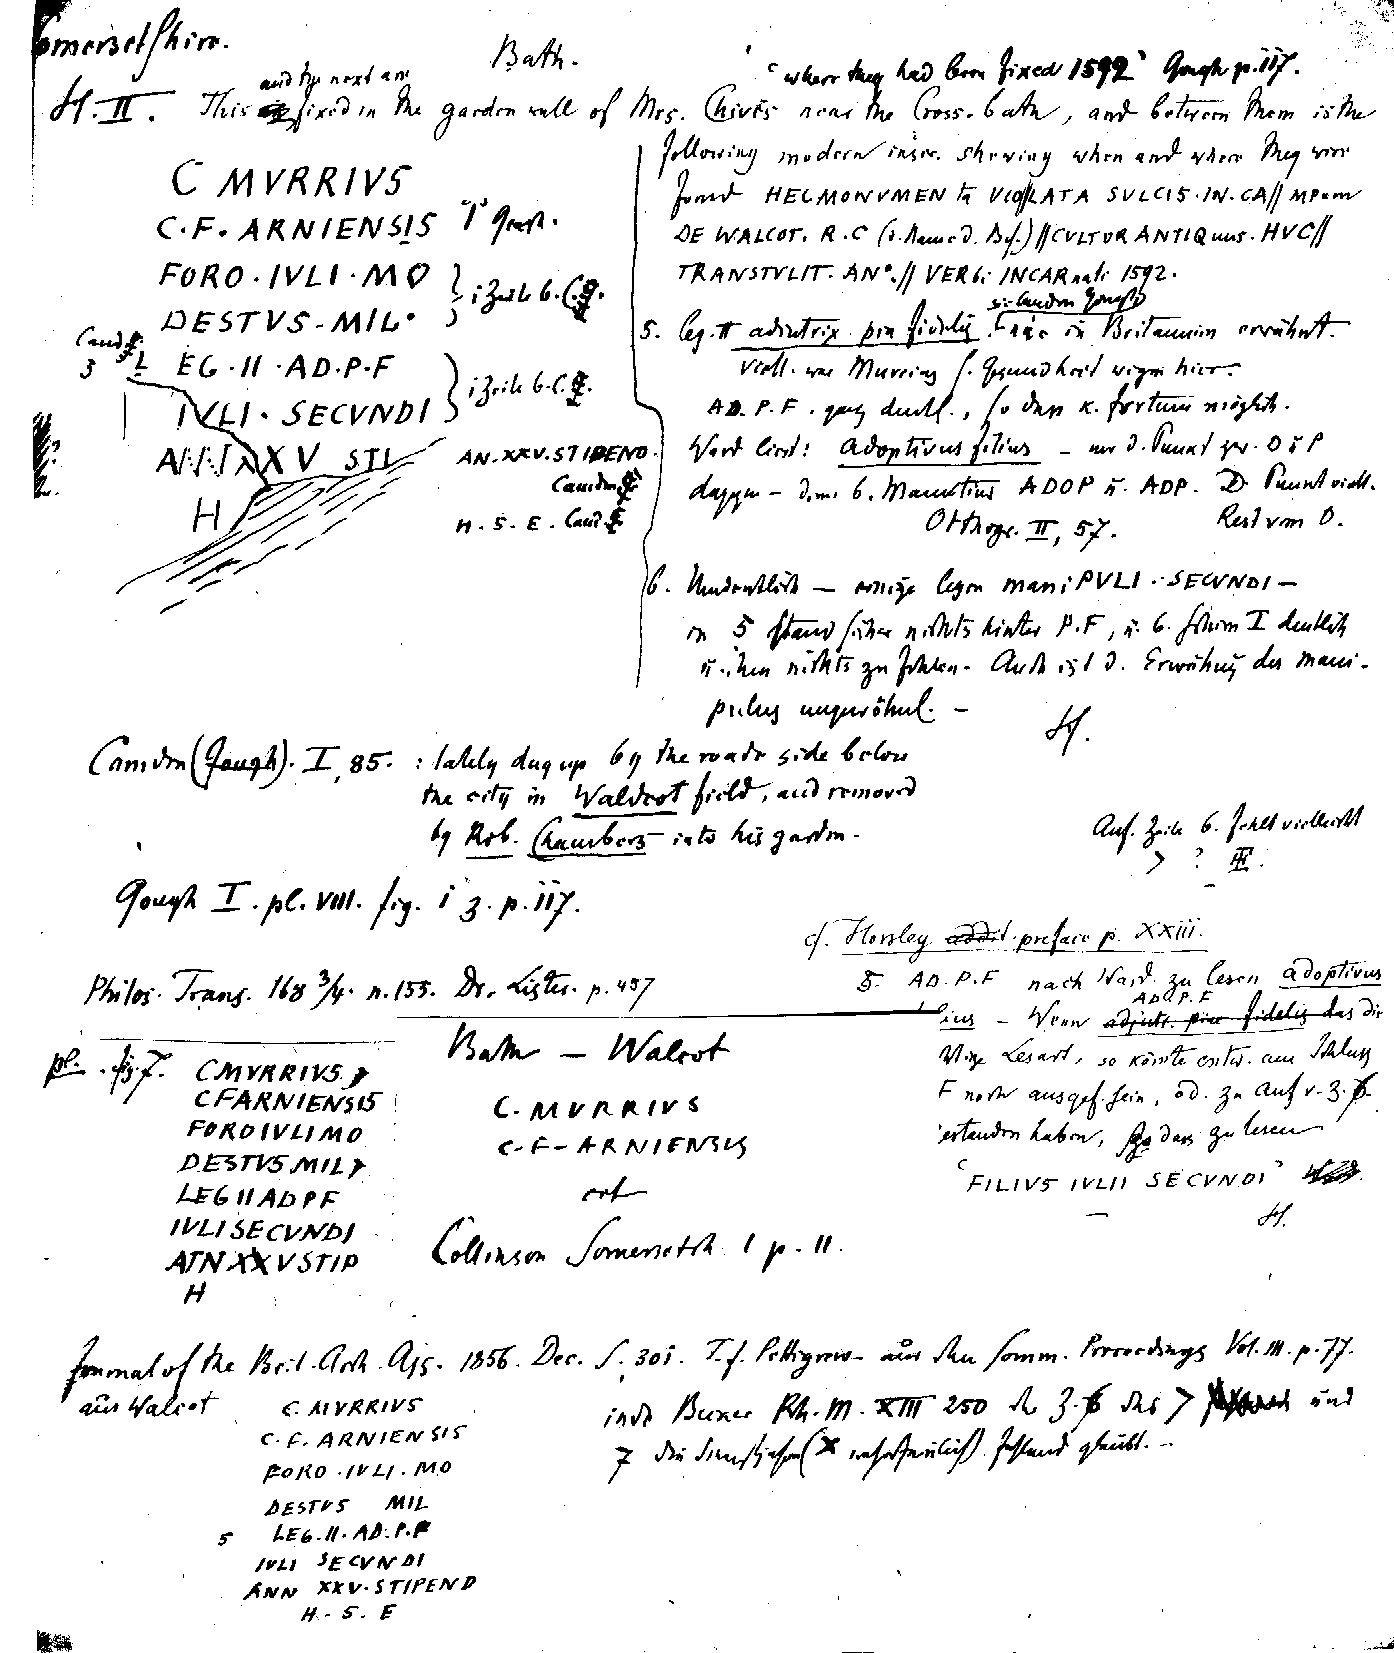 Somersetshire.
Bath.
and the next are
'where they had been fixed 1592' Gough p. 117.
H. II. This fixed in the garden wall of Mrs. Chivers near the Cross-bath, and between them is the
following modern inscr. shewing when and where they were
found HEC MONVMEN ta VIO//LATA SVLCIS. IN. CA// MPum
DE WALCOT. R. C (d. Name d. Bes.) //CVLTOR ANTIQuus. HVC//
TRANSTVLIT. AN°.// VERbi INCARnati 1592.
C MVRRIVS
C. F. ARNIENSIS "I" Gough.
FORO. IVLI. MO
DESTVS - MIL.
1 Zeile b. C. G.
Camd.
3 L EG. II. AD. P. F
IVLI. SECVNDI
1 Zeile b. C. G.
XXV STI
AN. XXV. STIPEND.
Camden
H
H. S. E. Camd.
s. Camden Gough
5. leg. II adiutrix pia fidelis nie in Britannien erwähnt.
viell. war Murrius s. Gesundheit wegen hier.
AD. P. F. ganz deutl., so dass k. fortuna möglich.
Ward liest: adoptivus filius - nur d. Punkt zw. D u P
dagegen - denn b. Muratius ADOP u. ADP. D. Punkt viell.
Rest vom O.
Otthogr. II, 57.
6. Undeutlich — einige lesen maniPVLI. SECVNDI —
in 5 stand sicher nichts hinter P. F, u. 6. schien I deutlich
u. ihm nichts zu fehlen. Auch ist d. Erwähng des mani-
pulus ungewöhnl. -
H.
Camden (Gough). I, 85. : lately dug up by the roade side below
the city in Waldcot field, and removed
by Rob. Chambers into his garden.
Auf. Zeile 6. fehlt vielleicht
> ?
Gough I. pl. VIII. fig. 1 z. p. 117.
cf. Horsley addit. preface p. XXIII.
5. AD. P. F nach Ward. zu lesen adoptivus
AD. P. F
lius - Wenn adjutr. piae fidelis das die
tige Lesart, so könnte entw. am Schluss
F noch ausgef. sein, od. zu Auf. v. Z. 6
estanden haben, so dass zu lesen
'FILIVS IVLII SECVNDI'
H.
Philos. Trans. 168 3/4. n. 155. Dr. Lister. p. 457
pl. fig. 7. C MVRRIVS
C F ARNIENSIS
FORO IVLI MO
DESTVS MIL
LEG II AD P F
IVLI SECVNDI
ATN XXV STIP
H
Bath — Walcot
C. MVRRIVS
C - F - ARNIENSIS
cet
Collinson Somersetsh. I p. 11.
Journal of the Brit. Arch. Ass. 1856. Dec. S. 301. T. J. Pettigrew - aus den Somm. Proceedings Vol. III. p. 77.
aus Walcot
C. MVRRIVS
C. F. ARNIENSIS
FORO. IVLI. MO
DESTVS MIL
5 LEG. II. AD. P. F
IVLI SECVNDI
ANN XXV. STIPEND
H. S. E
Rh. M. XIII 250 Z. 6 das > und
7 die wahrscheinlich) fehlend glaubt. -